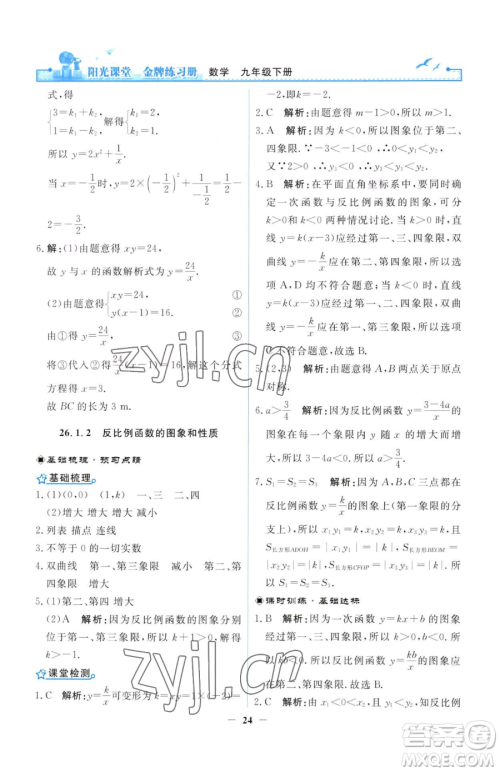 阳光课堂 金牌练习册 数学 九年级下册
式,得
{3=k₁+k₂,
{1=k₁-k₂.
{k₁=2,
{k₂=1.
所以 y=2x²+1/x.
当 x=-1/2时,y=2×(-1/2)²+1/(-1/2)
=2=-3/2.
6.解:(1)由题意得 xy=24,
故 y 与 x 的函数解析式为 y=24/x.
(2)由题意得{xy=24, ①
由①得 y=24/x, ③
将③代入②得 解这个分式
方程得 x=3.
故 BC 的长为 3 m.
26.1.2 反比例函数的图象和性质
基础梳理·预习点睛
基础梳理
1.(1)(0,0) (1,k) 一、三 二、四
(2)增大 增大 增大 减小
2.列表 描点 连线
3.不等于0的一切实数
4.双曲线 第一、第三象限 减小 第二、第
四象限 增大
5.(1)第二、第四 增大
(2)A 解析:因为反比例函数的图象分别
位于第二、第四象限,所以 k+1<0,即
k<-1.
课堂检测
1.C 解析:y=k/x可变形为 k=xy=1×(-2)=
-2,即 k=-2.
2.C 解析:由题意得 m-1>0,所以 m>1.
3.A 解析:因为 k<0,所以图象位于第二、
四象限.∵-3<-1<0,∴0<y₁<y₂.
又∵2>0,∴y₃<0,∴y₃<y₁<y₂.
4.B 解析:在平面直角坐标系中,题目中给
定一次函数与反比例函数的图象,可分
k>0 与 k<0 两种情况讨论.由 k>0,得直
线 y=kx+1 经过第一、二、三象限,双
曲线 y=-k/x在第二、第四象限,所以选
项A、D均不符合题意;由 k<0,得直线
y=kx+1 经过第一、二、四象限,双曲线
y=-k/x在第一、第三象限,所以选项
C 不符合题意,故选 B.
5.(2,3) 解析:由题意得 A,B 两点关于原点
对称.
6.a>3/4 解析:因为反比例函数 y=(3-4a)/x
的图象在第二、第四象限,所以 3-4a<0,
解得 a>3/4.
7.S₁=S₂=S₃ 解析:因为点 A,B,C 都在
反比例函数 y=k/x的图象上的第一象限的分
支上,所以它们的横、纵坐标的积为 k,且
S长方形ADOH=|k|,S长方形BEOM=
|k|,S长方形CFOP=|k|,所
以 S₁=S₂=S₃.
课时训练·基础达标
1.B 解析:因为一次函数 y=kx+b 的图象
经过第一、三、四象限,所以 k>0,b<0,所
以 kb<0.所以反比例函数 y=kb/x的图象在
第二、第四象限.故选 B.
2.C 解析:由 x₁<x₂<0,y₁<y₂,知反比例
24
zyjl.cn